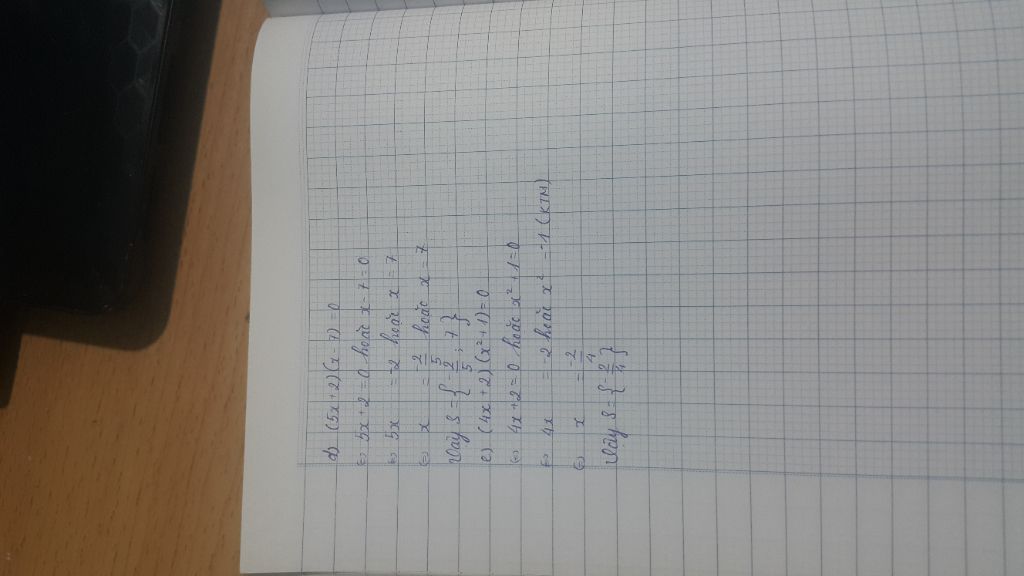 d) (5x + 2)(x - 7) = 0
⇔ 5x + 2 = 0 hoặc x - 7 = 0
⇔ 5x = -2 hoặc x = 7
⇔ x = -2/5 hoặc x = 7
Vậy S = {-2/5 ; 7}
e) (4x + 2)(x² + 1) = 0
⇔ 4x + 2 = 0 hoặc x² + 1 = 0
⇔ 4x = -2 hoặc x² = -1 (KTM)
⇔ x = -2/4
Vậy S = {-2/4}